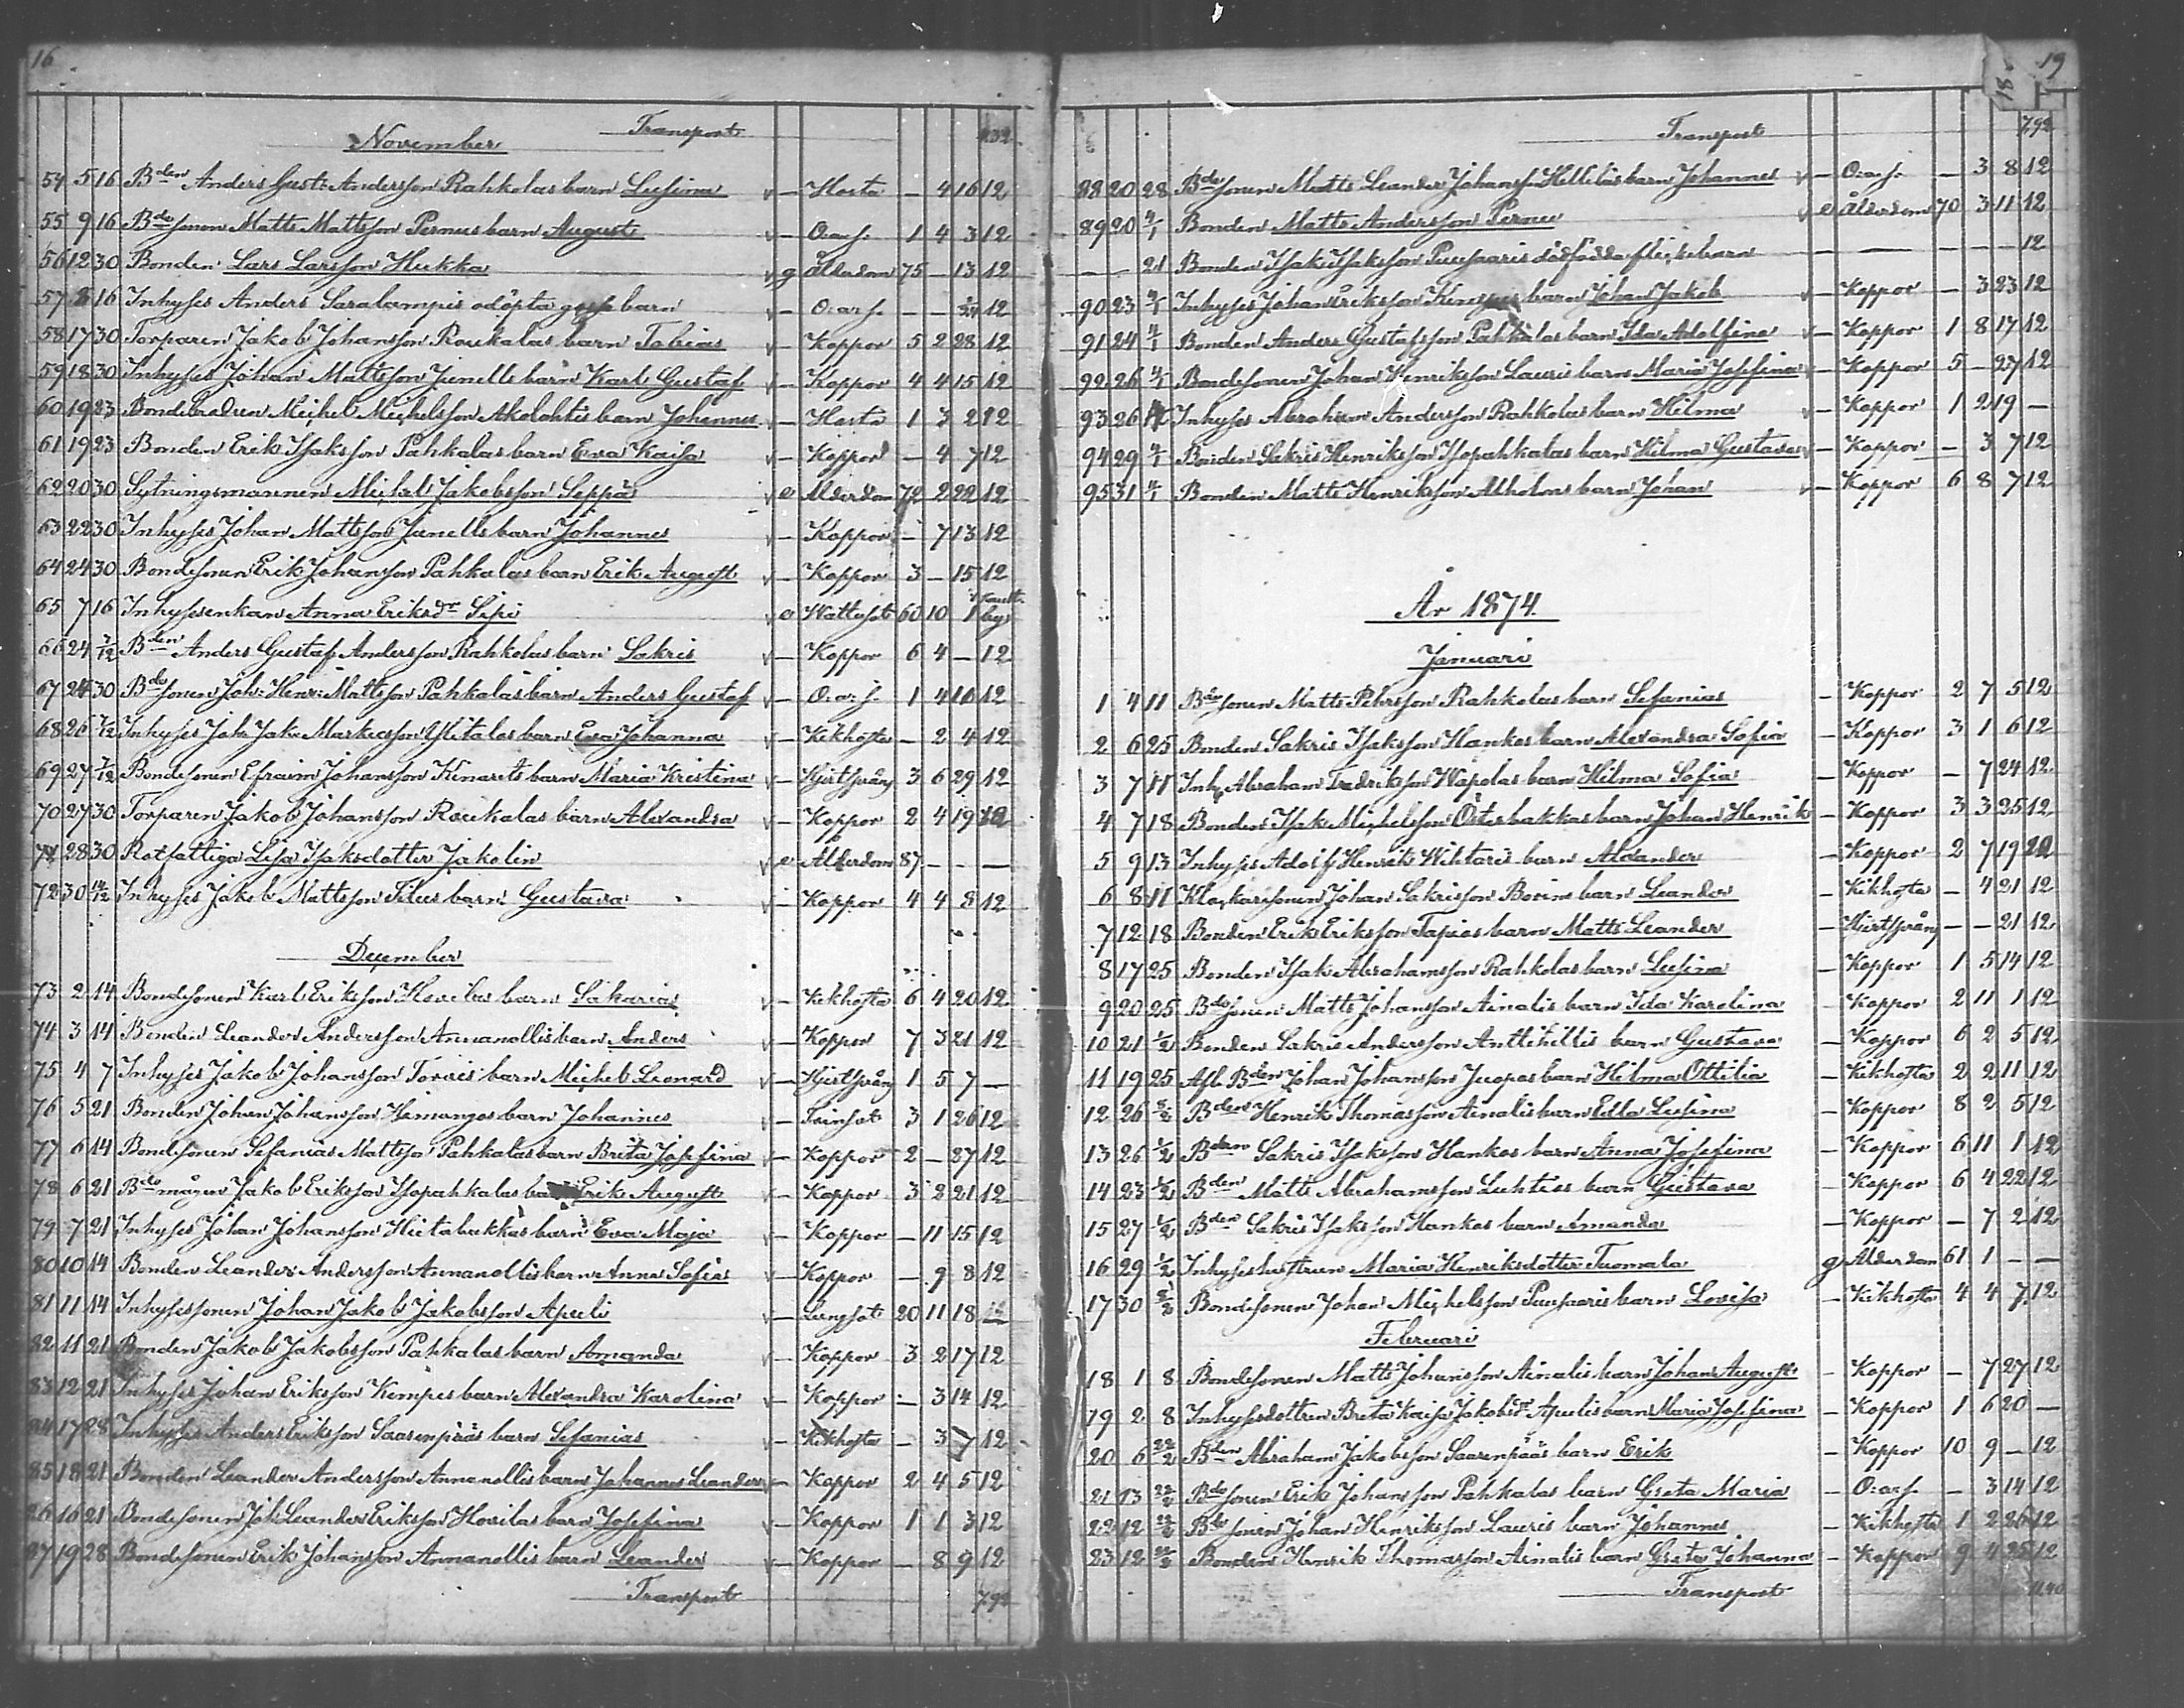 16
Transport 432
November
54 5 16 Bden Anders Gust: Andersson Rahkolas barn Lusina v — Hosta — 4 16 12
55 9 16 Bdesonen Matts Mattsson Pernus barn August v — O. a. s. 1 4 3 12
56 12 30 Bonden Lars Larsson Hukka v g Ålderdom 75 — 13 12
57 8 16 Inhyses Anders Saralampis odöpta gosse barn v — O. a. s. — — 12
58 17 30 Torparen Jakob Johansson Roukalas barn Tobias v — Koppor 5 2 28 12
59 18 30 Inhyses Johan Mattsson Junells barn Karl Gustaf v — Koppor 4 4 15 12
60 19 23 Bondebrodren Michel Michelsson Akolahtis barn Johannes v — Hosta 1 3 2 12
61 19 23 Bonden Erik Isaksson Pahkalas barn Eva Kaisa v — Koppor — 4 7 12
62 20 30 Sytningsmannen Michel Jakobsson Seppä v e Alderdom 72 2 22 12
63 22 30 Inhyses Johan Mattsson Junells barn Johannes v — Koppor — 7 13 12
64 24 30 Bondesonen Erik Johansson Pahkalas barn Erik August v — Koppor 3 — 15 12
65 7 16 Inhysesenkan Anna Eriksdr Sipi v e Wattusot 60 10 1 by
66 24 7/12 Bden Anders Gustaf Andersson Rahkolas barn Sakris v — Koppor 6 4 — 12
67 24 30 Bdesonen Joh: Henr: Mattsson Pahkalas barn Anders Gustaf v — O. a. s. 1 4 10 12
68 26 7/12 Inhyses Joh: Jak: Markusson Ylitalos barn Eva Johanna v — Kikhosta — 2 4 12
69 27 7/12 Bondesonen Efraim Johansson Kinarets barn Maria Kristina v — Hjertsprång 3 6 29 12
70 27 30 Torparen Jakob Johansson Roukalas barn Alexandra v — Koppor 2 4 19 12
71 28 30 Rotfattiga Lisa Isaksdotter Jakolin v e Alderdom 87 — — —
72 30 14/12 Inhyses Jakob Mattsson Filus barn Gustava v — Koppor 4 4 8 12
December
73 2 14 Bondesonen Karl Eriksson Hovilas barn Sakarias v — Kikhosta 6 4 20 12
74 3 14 Bonden Leander Andersson Annanollis barn Anders v — Koppor 7 3 21 12
75 4 7 Inhyses Jakob Johansson Torvis barn Michel Leonard v — Hjertsprång 1 5 7 —
76 5 21 Bonden Johan Johansson Himangos barn Johannes v — Tvinsot 3 1 26 12
77 6 14 Bondesonen Sefanias Mattsson Pahkalas barn Brita Josefina v — Koppor 2 — 27 12
78 6 21 Bdemågen Jakob Eriksson Isopahkalas barn Erik August v — Koppor 3 2 21 12
79 7 21 Inhyses Johan Johansson Hietabakkas barn Eva Maja v — Koppor — 11 15 12
80 10 14 Bonden Leander Andersson Annanollis barn Anna Sofia v — Koppor — 9 8 12
81 11 14 Inhysessonen Johan Jakob Jakobsson Apuli v — Lungsot 20 11 18 12
82 11 21 Bonden Jakob Jakobsson Pahkalas barn Amanda v — Koppor 3 2 17 12
83 12 21 Inhyses Johan Eriksson Kempes barn Alexandra Karolina v — Koppor — 3 14 12
84 17 28 Inhyses Anders Eriksson Saarenpääs barn Sefanias v — Kikhosta — 3 7 12
85 18 21 Bonden Leander Andersson Annanollis barn Johannes Leander v — Koppor 2 4 5 12
86 16 21 Bondesonen Joh: Leander Eriksson Hovilas barn Josefina v — Koppor 1 1 3 12
87 19 28 Bondesonen Erik Johansson Annanollis barn Leander v — Koppor — 8 9 12
Transport 792
18 19
Transport 792
88 20 28 Bdesonen Matts Leander Johansson Hellilas barn Johannes v — O. a. s. — 3 8 12
89 20 4/1 Bonden Matts Andersson Pernu v e Ålderdom 70 3 11 12
— — 21 Bonden Isak Isaksson Puusaaris dödfödda flickebarn — — — — — 12
90 23 4/1 Inhyses Johan Eriksson Kempes barn Johan Jakob v — Koppor — 3 23 12
91 24 4/1 Bonden Anders Gustafsson Pahkalas barn Ida Adolfina v — Koppor 1 8 17 12
92 26 4/1 Bondesonen Johan Henriksson Lauris barn Maria Josefina v — Koppor 5 — 27 12
93 26 Inhyses Abraham Andersson Rahkolas barn Hilma v — Koppor 1 2 19 —
94 29 4/1 Bonden Sakris Henriksson Isopahkalas barn Hilma Gustava v — Koppor — 3 7 12
95 31 4/1 Bonden Matts Henriksson Alholms barn Johan v — Koppor 6 8 7 12
År 1874.
Januari
1 4 11 Bdesonen Matts Pehrsson Rahkolas barn Sefanias — Koppor 2 7 5 12
2 6 25 Bonden Sakris Isaksson Hankos barn Alexandra Sofia — Koppor 3 1 6 12
3 7 11 Inh. Abraham Fredriksson Wapolas barn Hilma Sofia — Koppor — 7 24 12
4 7 18 Bonden Isak Michelsson Österbakkas barn Johan Henrik — Koppor 3 3 25 12
5 9 13 Inhyses Adolf Henrik Wiktaris barn Alexander — Koppor 2 7 19 12
6 8 11 Klockaresonen Johan Sakrisson Borins barn Leander — Kikhosta — 4 21 12
7 12 18 Bonden Erik Eriksson Tapios barn Matts Leander — Hjertsprång — — 21 12
8 17 25 Bonden Isak Abrahamsson Rahkolas barn Lusina — Koppor 1 5 14 12
9 20 25 Bdesonen Matts Johansson Ainalis barn Ida Karolina — Koppor 2 11 1 12
10 21 1/2 Bonden Sakris Andersson Anttihillis barn Gustava — Koppor 6 2 5 12
11 19 25 Afl. Bden Johan Johansson Juopas barn Hilma Ottilia — Kikhosta 2 2 11 12
12 26 8/2 Bden Henrik Thomasson Ainalis barn Edla Lusina — Koppor 8 2 5 12
13 26 1/2 Bden Sakris Isaksson Hankos barn Anna Josefina — Koppor 6 11 1 12
14 23 1/2 Bden Matts Abrahamsson Luhtas barn Gustava — Koppor 6 4 22 12
15 27 1/2 Bden Sakris Isaksson Hankos barn Amanda — Koppor — 7 2 12
16 29 1/2 Inhyseshustrun Maria Henriksdotter Tuomala g Alderdom 61 1 — —
17 30 8/2 Bondesonen Johan Michelsson Puusaaris barn Lovisa — Kikhosta 4 4 7 12
Februari
18 1 8 Bondesonen Matts Johansson Ainalis barn Johan August — Koppor — 7 27 12
19 2 8 Inhysesdottren Brita Kaisa Jakobsdr Apulis barn Maria Josefina — Koppor 1 6 20 —
20 6 22/2 Bden Abraham Jakobsson Saarenpääs barn Erik — Koppor 10 9 — 12
21 13 22/2 Bdesonen Erik Johansson Pahkalas barn Greta Maria — O. a. s. — 3 14 12
22 12 22/2 Bdesonen Johan Henriksson Lauris barn Johannes — Kikhosta 1 2 26 12
23 12 22/2 Bonden Henrik Thomasson Ainalis barn Greta Johanna — Koppor 9 4 25 12
Transport 1140